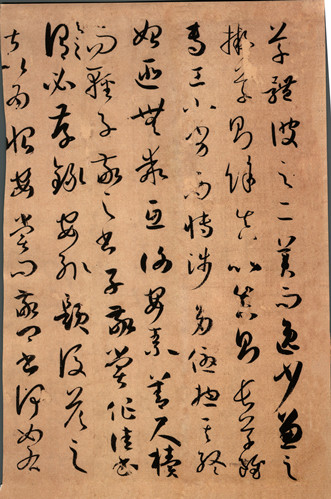 草體彼之二美而逸少兼之
擬草則餘真比真則長草雖
專工小劣而博涉多優揔其終
始匪無乖互謝安素善尺櫝
而輕子敬之書子敬嘗作佳書
與之謂必存錄安輒題後答之
甚以為恨安嘗問敬卿書何如右